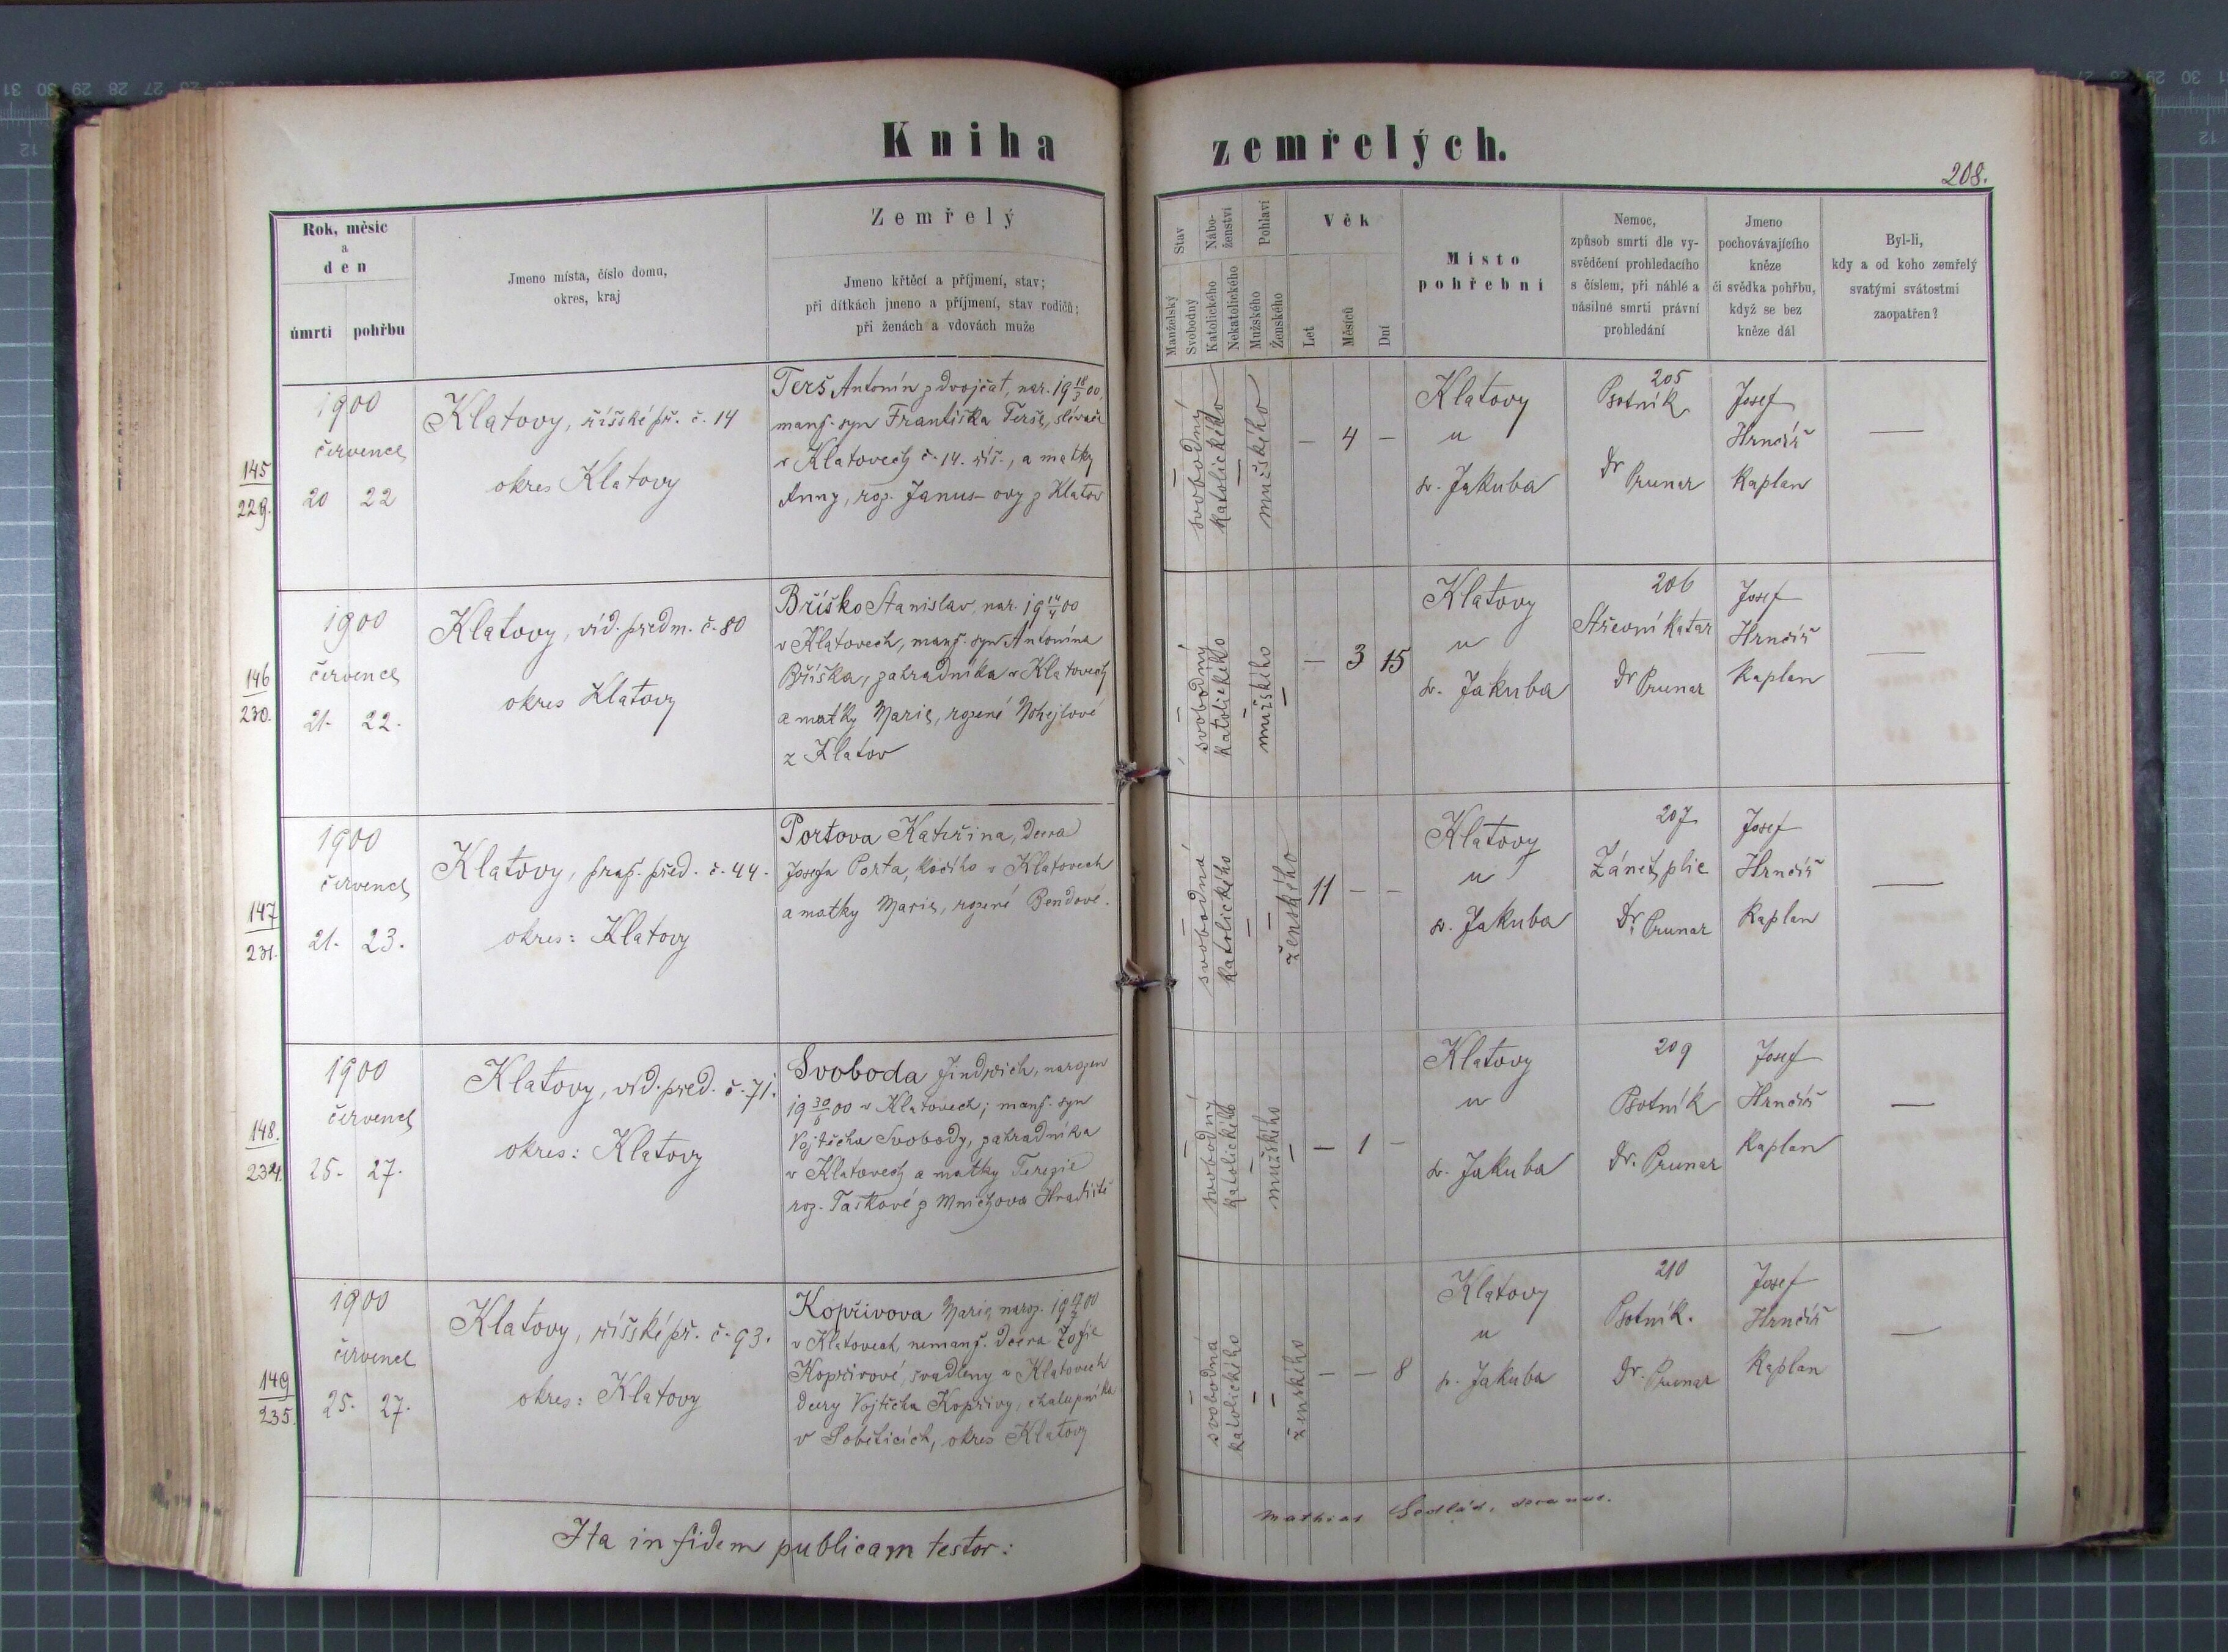 Kniha zemřelých.
208.
Rok, měsíc
a
den
úmrtí pohřbu
Jmeno místa, číslo domu,
okres, kraj
Zemřelý
Jmeno křtěcí a příjmení, stav;
při dítkách jmeno a příjmení, stav rodičů;
při ženách a vdovách muže
Stav
Manželský
Svobodný
Nábo-
ženství
Katolického
Nekatolického
Pohlaví
Mužského
Ženského
Věk
Let
Měsíců
Dní
Místo
pohřební
Nemoc,
způsob smrti dle vy-
svědčení prohledacího
s číslem, při náhlé a
násilné smrti právní
prohledání
Jmeno
pochovávajícího
kněze
či svědka pohřbu,
když se bez
kněze dál
Byl-li,
kdy a od koho zemřelý
svatými svátostmi
zaopatřen?
145
229.
1900
července
20 22
Klatovy, říšské př. č. 14
okres Klatovy
Terš Antonín z dvojčat, nar. 19 18/3 00,
manž. syn Františka Terše, slévače
v Klatovech č. 14. říš., a matky
Anny, roz. Janus-ovy z Klatov
— svobodný
katolického —
mužského
— 4 —
Klatovy
u
sv. Jakuba
205
Psotník
Dr Prunar
Josef
Hrnčíř
Kaplan
—
146
230.
1900
července
21. 22.
Klatovy, víd. předm. č. 80
okres Klatovy
Bříško Stanislav, nar. 19 14/4 00
v Klatovech, manž. syn Antonína
Bříška, zahradníka v Klatovech
a matky Marie, rozené Nohejlové
z Klatov
— svobodný
katolického —
mužského —
— 3 15
Klatovy
u
sv. Jakuba
206
Střevní katar
Dr Prunar
Josef
Hrnčíř
Kaplan
—
147
231.
1900
července
21. 23.
Klatovy, praž. před. č. 44.
okres: Klatovy
Portova Kateřina, dcera
Josefa Porta, kočího v Klatovech
a matky Marie, rozené Bendové.
— svobodná
katolického —
— ženského
11 — —
Klatovy
u
sv. Jakuba
207
Zánět plic
Dr. Prunar
Josef
Hrnčíř
Kaplan
—
148.
234.
1900
července
25. 27.
Klatovy, víd. před. č. 71.
okres: Klatovy
Svoboda Jindřich, narozen
19 30/6 00 v Klatovech; manž. syn
Vojtěcha Svobody, zahradníka
v Klatovech a matky Terezie
roz. Taškové z Mnichova Hradiště
— svobodný
katolického —
mužského —
— 1 —
Klatovy
u
sv. Jakuba
209
Psotník
Dr. Prunar
Josef
Hrnčíř
Kaplan
—
149
235.
1900
července
25. 27.
Klatovy, říšské př. č. 93.
okres: Klatovy
Kopřivova Marie, naroz. 19 00
v Klatovech, nemanž. dcera Žofie
Kopřivové, švadleny v Klatovech
dcery Vojtěcha Kopřivy, chalupníka
v Soběticích, okres Klatovy
— svobodná
katolického —
— ženského
— — 8
Klatovy
u
sv. Jakuba
210
Psotník.
Dr. Prunar
Josef
Hrnčíř
Kaplan
—
Ita in fidem publicam testor:
Mathias